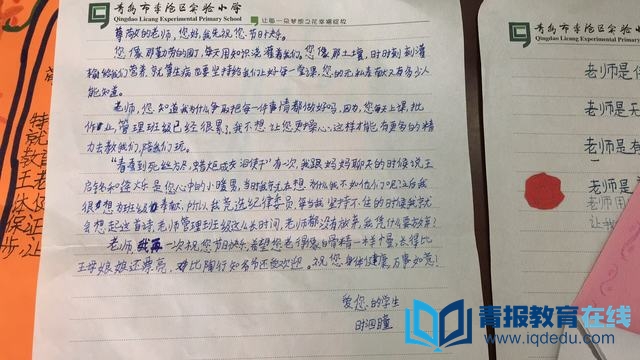 青岛市李沧区实验小学
Qingdao Licang Experimental Primary School
让每一朵梦想之花幸福绽放
尊敬的老师,您好,我先祝您节日快乐。
您像那勤劳的园丁,每天用知识浇灌着我们。您像那土壤,时时刻刻灌
输给我们营养,就算生病也要坚持给我们上好每一堂课,您的无私奉献又有多少人
能知道。
老师,您知道我为什么争取把每一件事情都做好吗,因为,您每天上课,批
作业,管理班级已经很累了,我不想让您更操心,这样才能有更多的精
力去教我们,陪我们玩。
"春蚕到死丝方尽,蜡炬成灰泪使干"有一次,我跟妈妈聊天的时候说,王
是您心中的小暖男,当时我就在想 为什么我不如他们呢?之后我
很想为班级奉献,所以,我竞选纪律委员,每当我坚持不住的时候我就
会想起这首诗,老师管理班级这么长时间,老师都没放弃,我凭什么要放弃?
老师,我再一次祝您节日快乐,希望您老得像白骨精一样慢,长得比
王母娘娘还漂亮,难比陶行知爷爷还受欢迎。祝您身体健康,万事如意!
爱您的学生
时泗瞳
青岛市李沧区实验小学
Qingdao Licang Experimental Primary School
老师是
老师无
老师是
老师是
老师用
让我
特
就
教育
王老
体
保证
步,让
青报教育在线
www.iqdedu.com